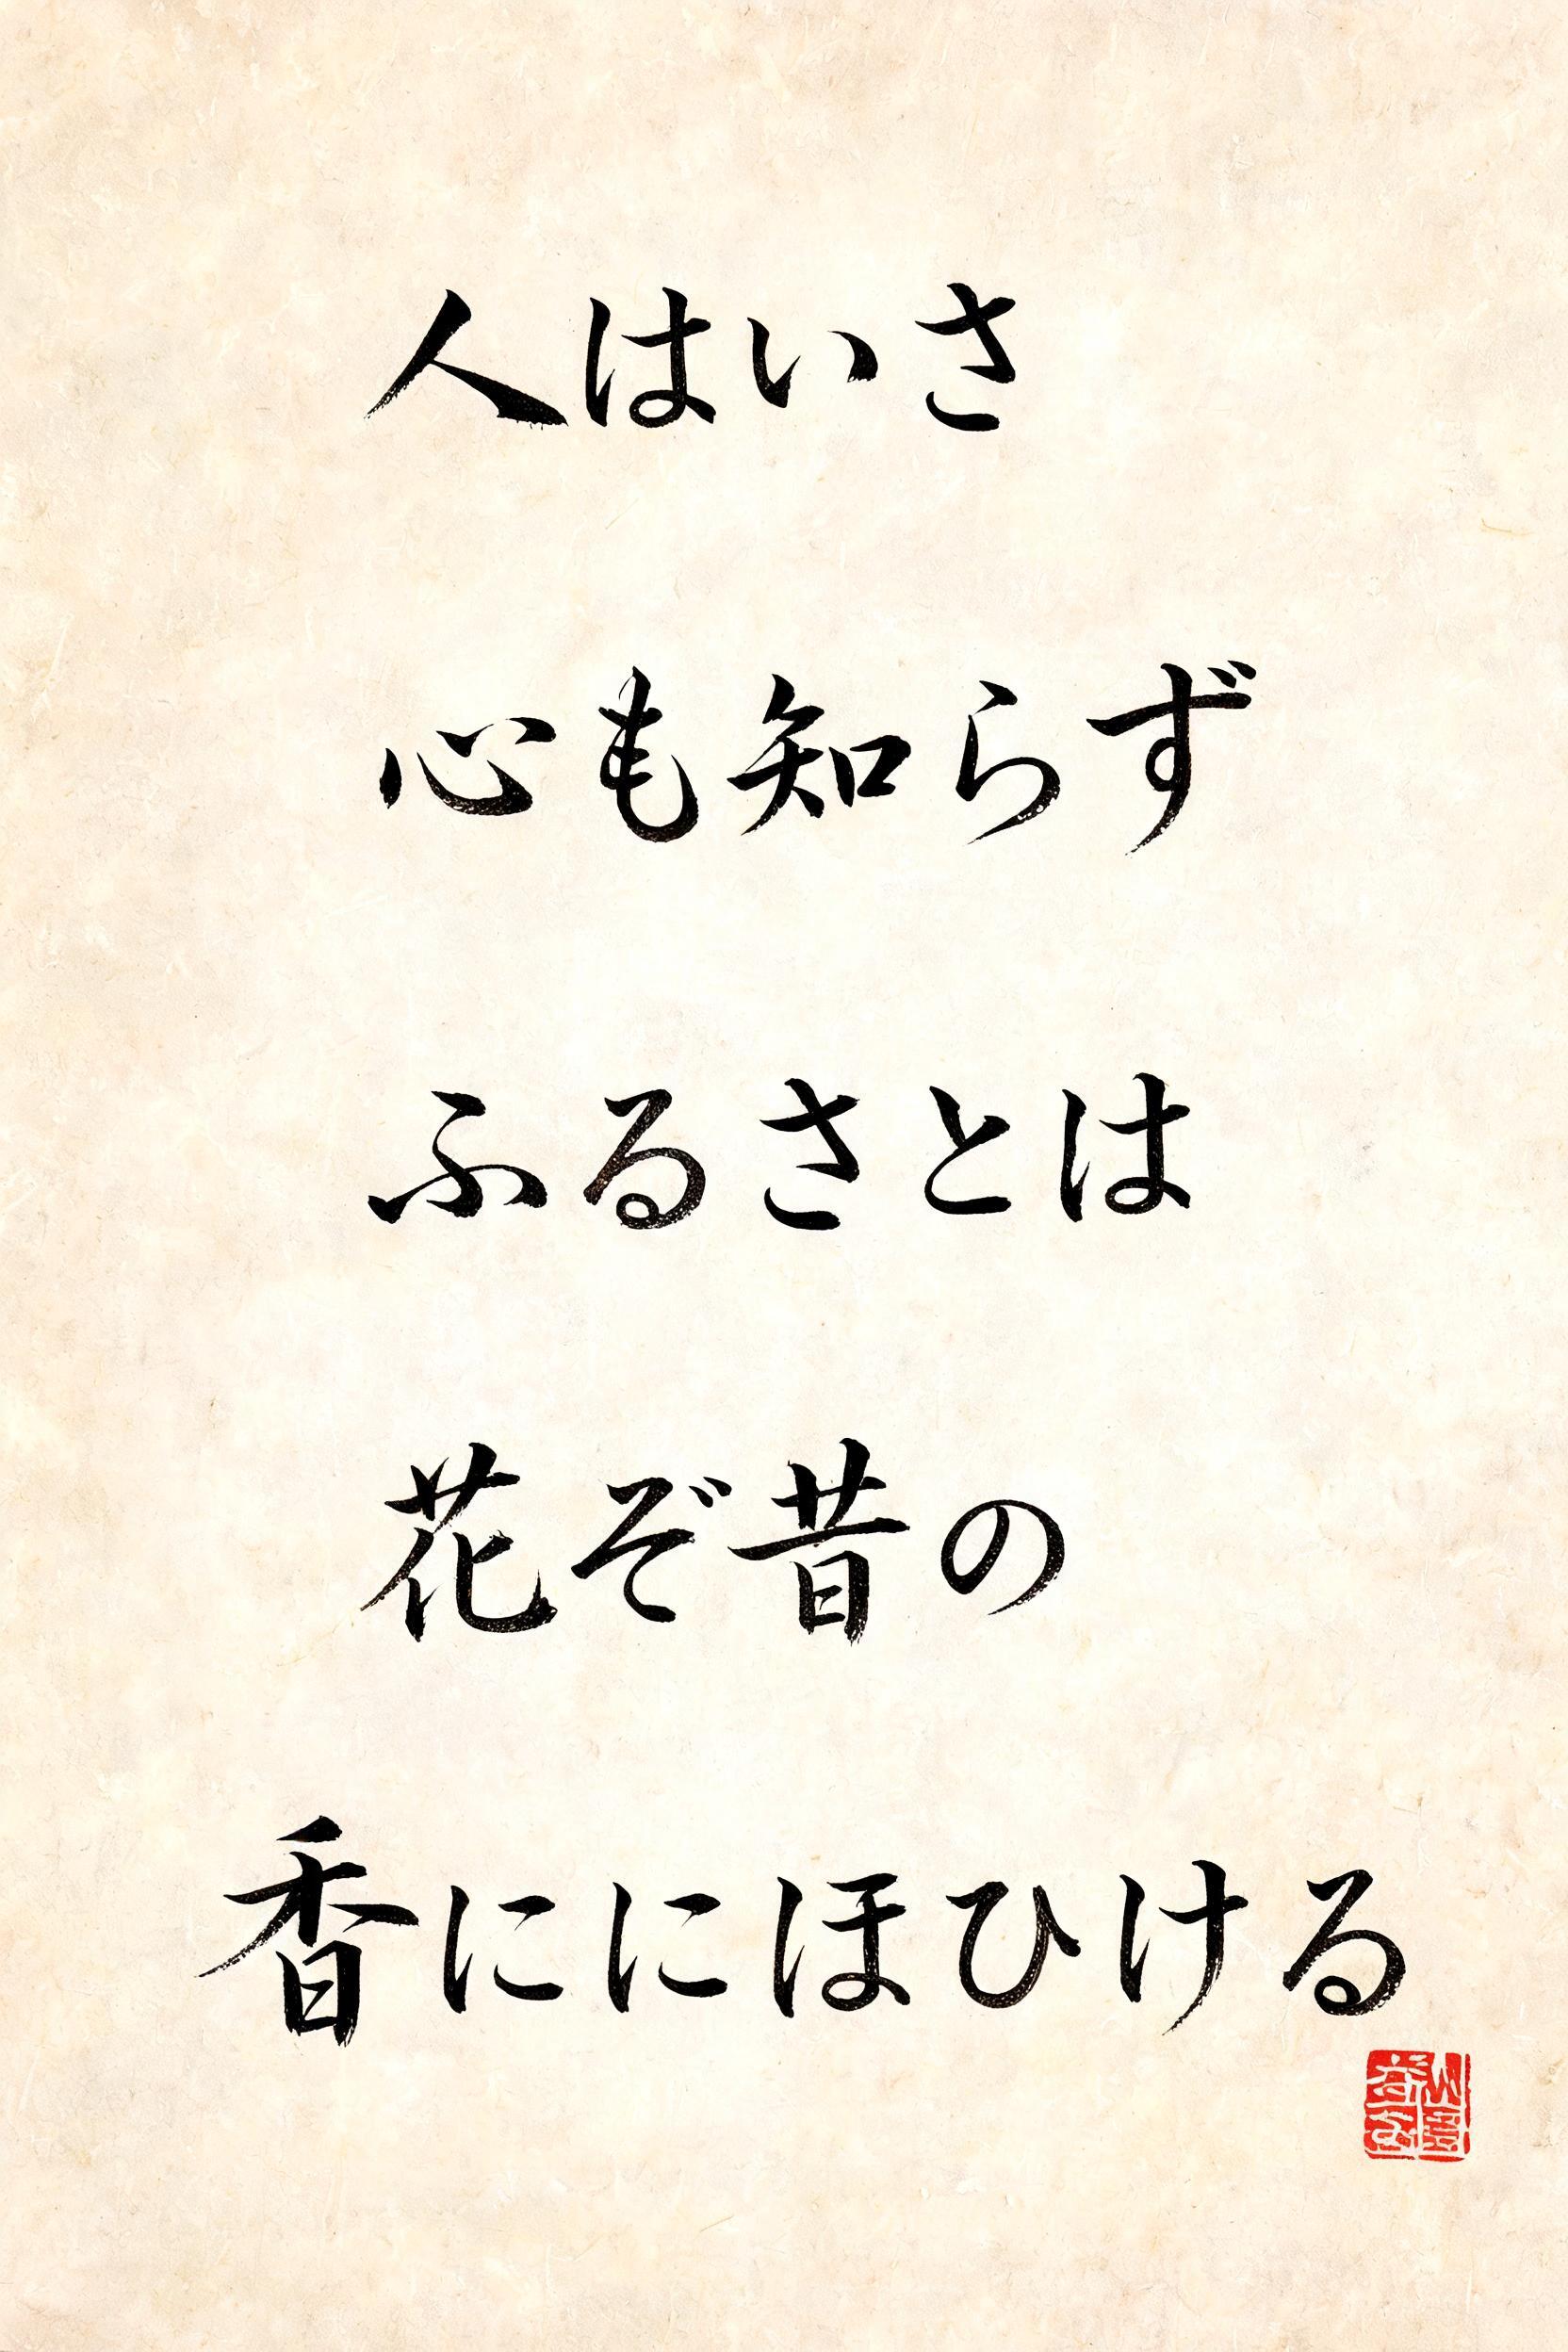 人はいさ
心も知らず
ふるさとは
花ぞ昔の
香ににほひける